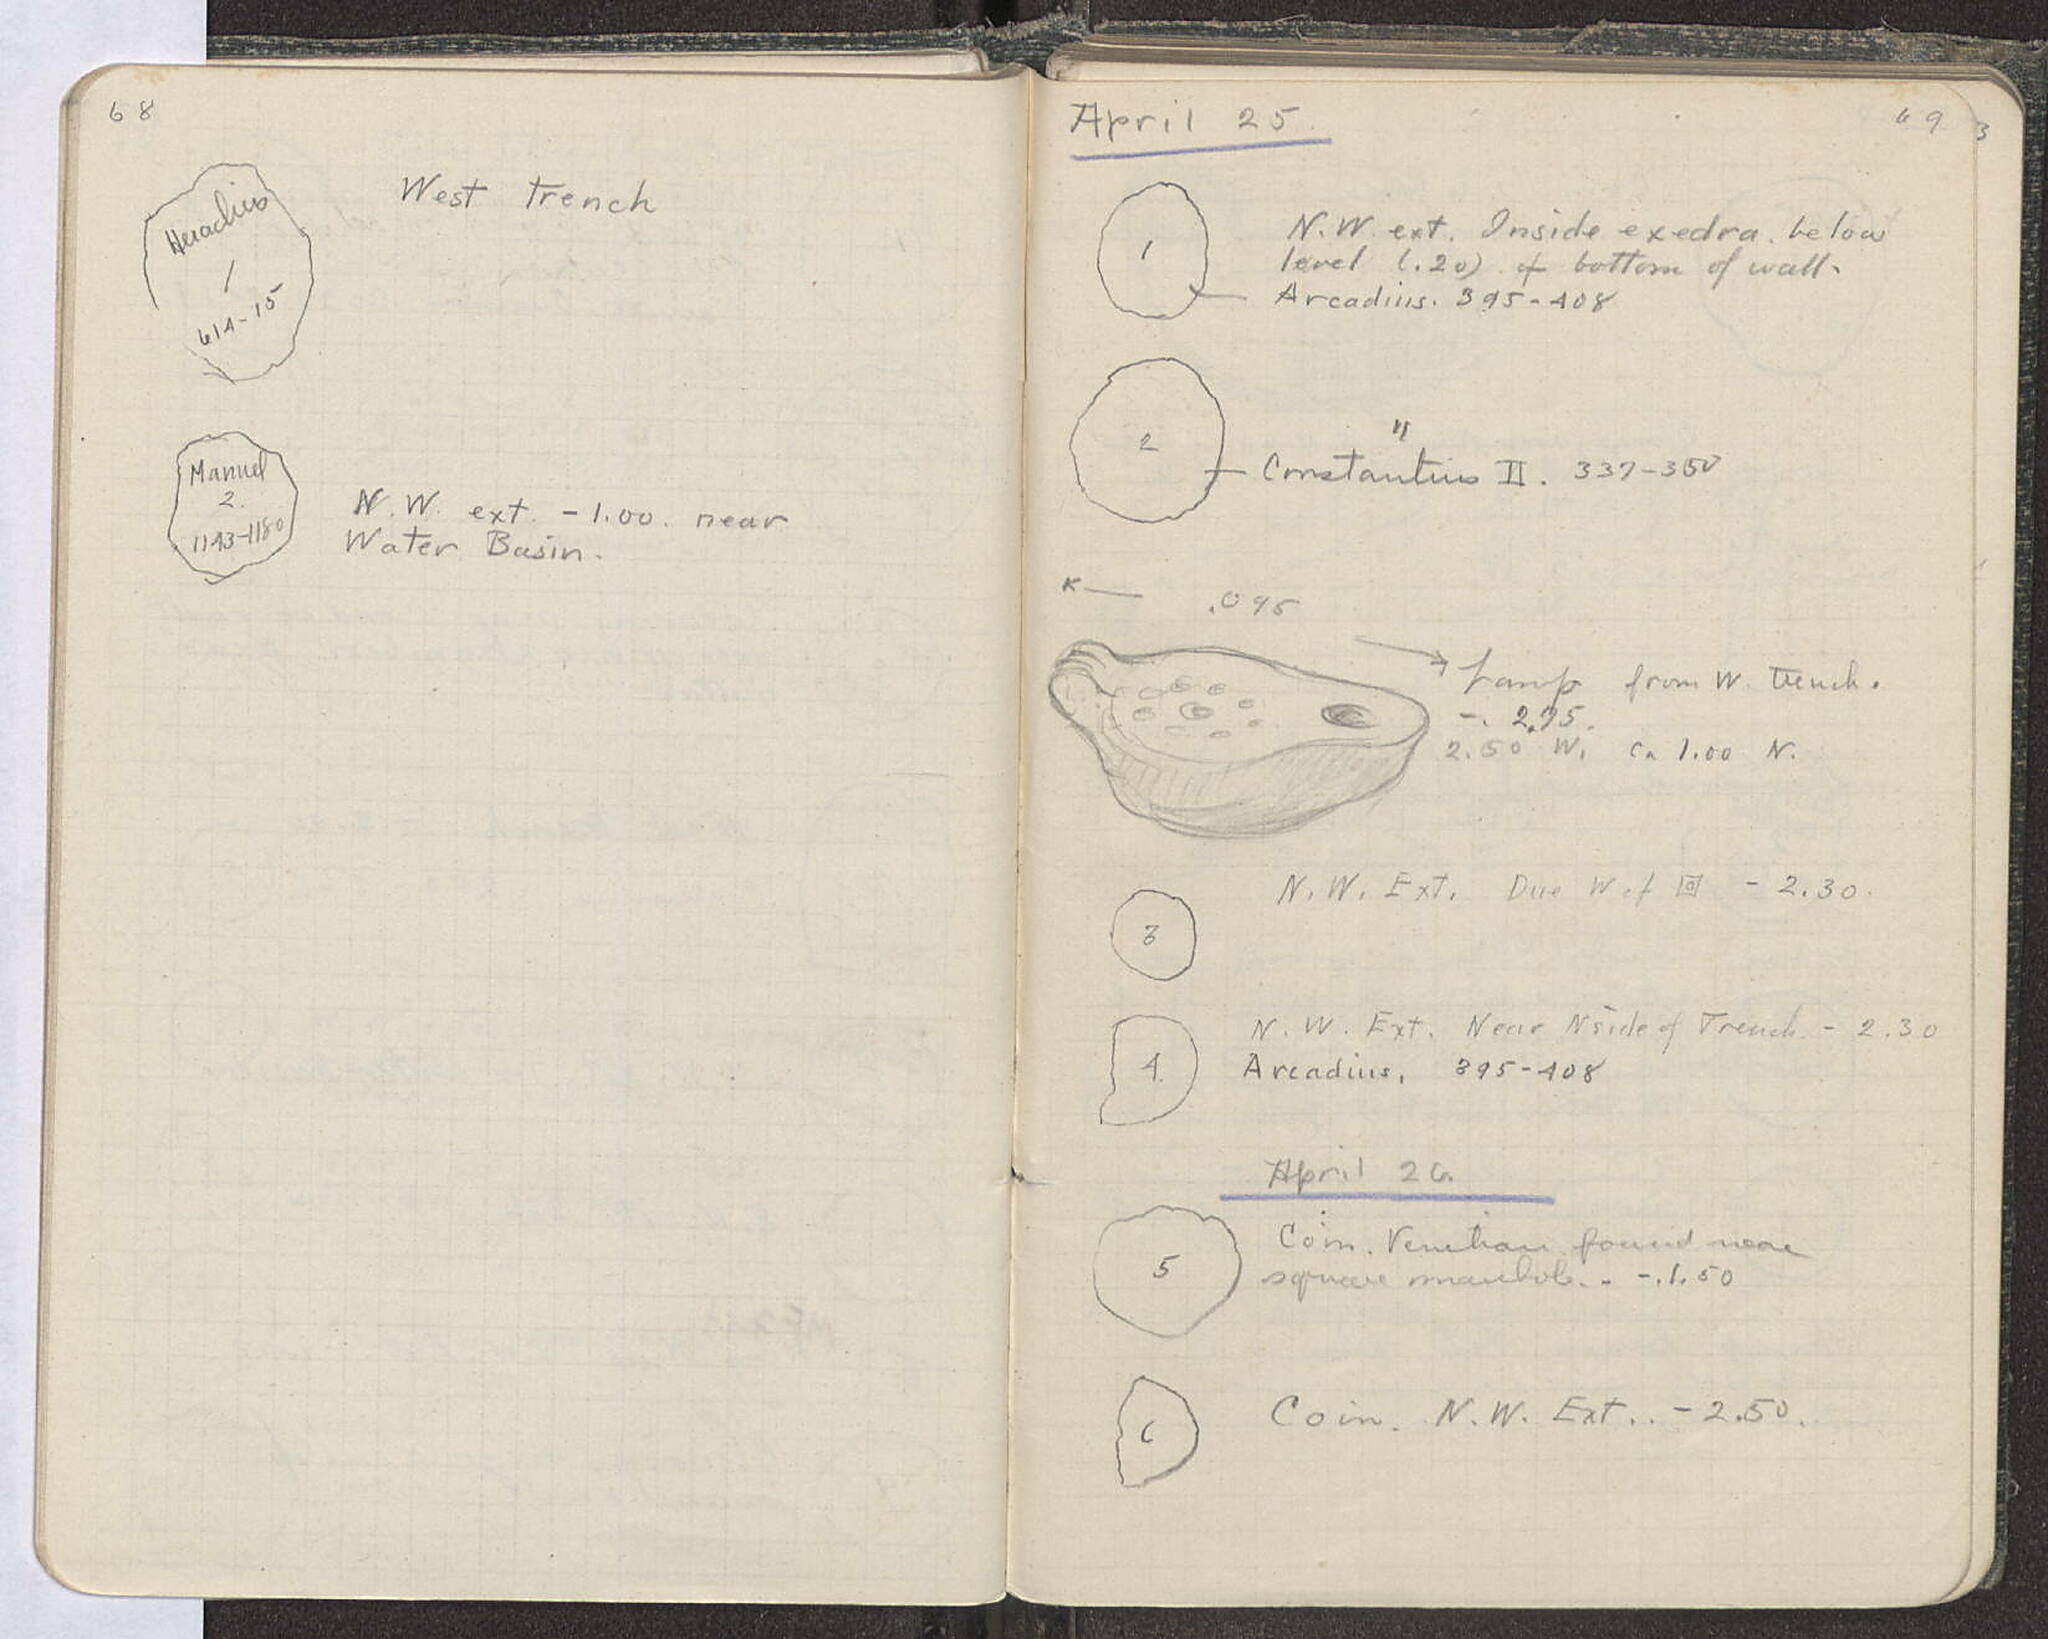 68
Heraclius
1
614-15
West Trench
Manuel
2.
1143-1180
N.W. ext. -1.00. near
Water Basin.
April 25.
69
3
1
N.W. ext. Inside exedra. below
level (.20) of bottom of wall.
Arcadius. 395-408
2
"
Constantius II. 337-350
.095
Lamp from W. Trench.
-. 2.75.
2.50 W. Ca 1.00 N.
N.W. Ext. Due W of - 2.30.
3
N.W. Ext. Near N side of Trench. - 2.30
4.
Arcadius. 395-408
April 26.
5
Coin. Venetian found near
square manhole. - -.1.50
6
Coin. N.W. Ext.. - 2.50.